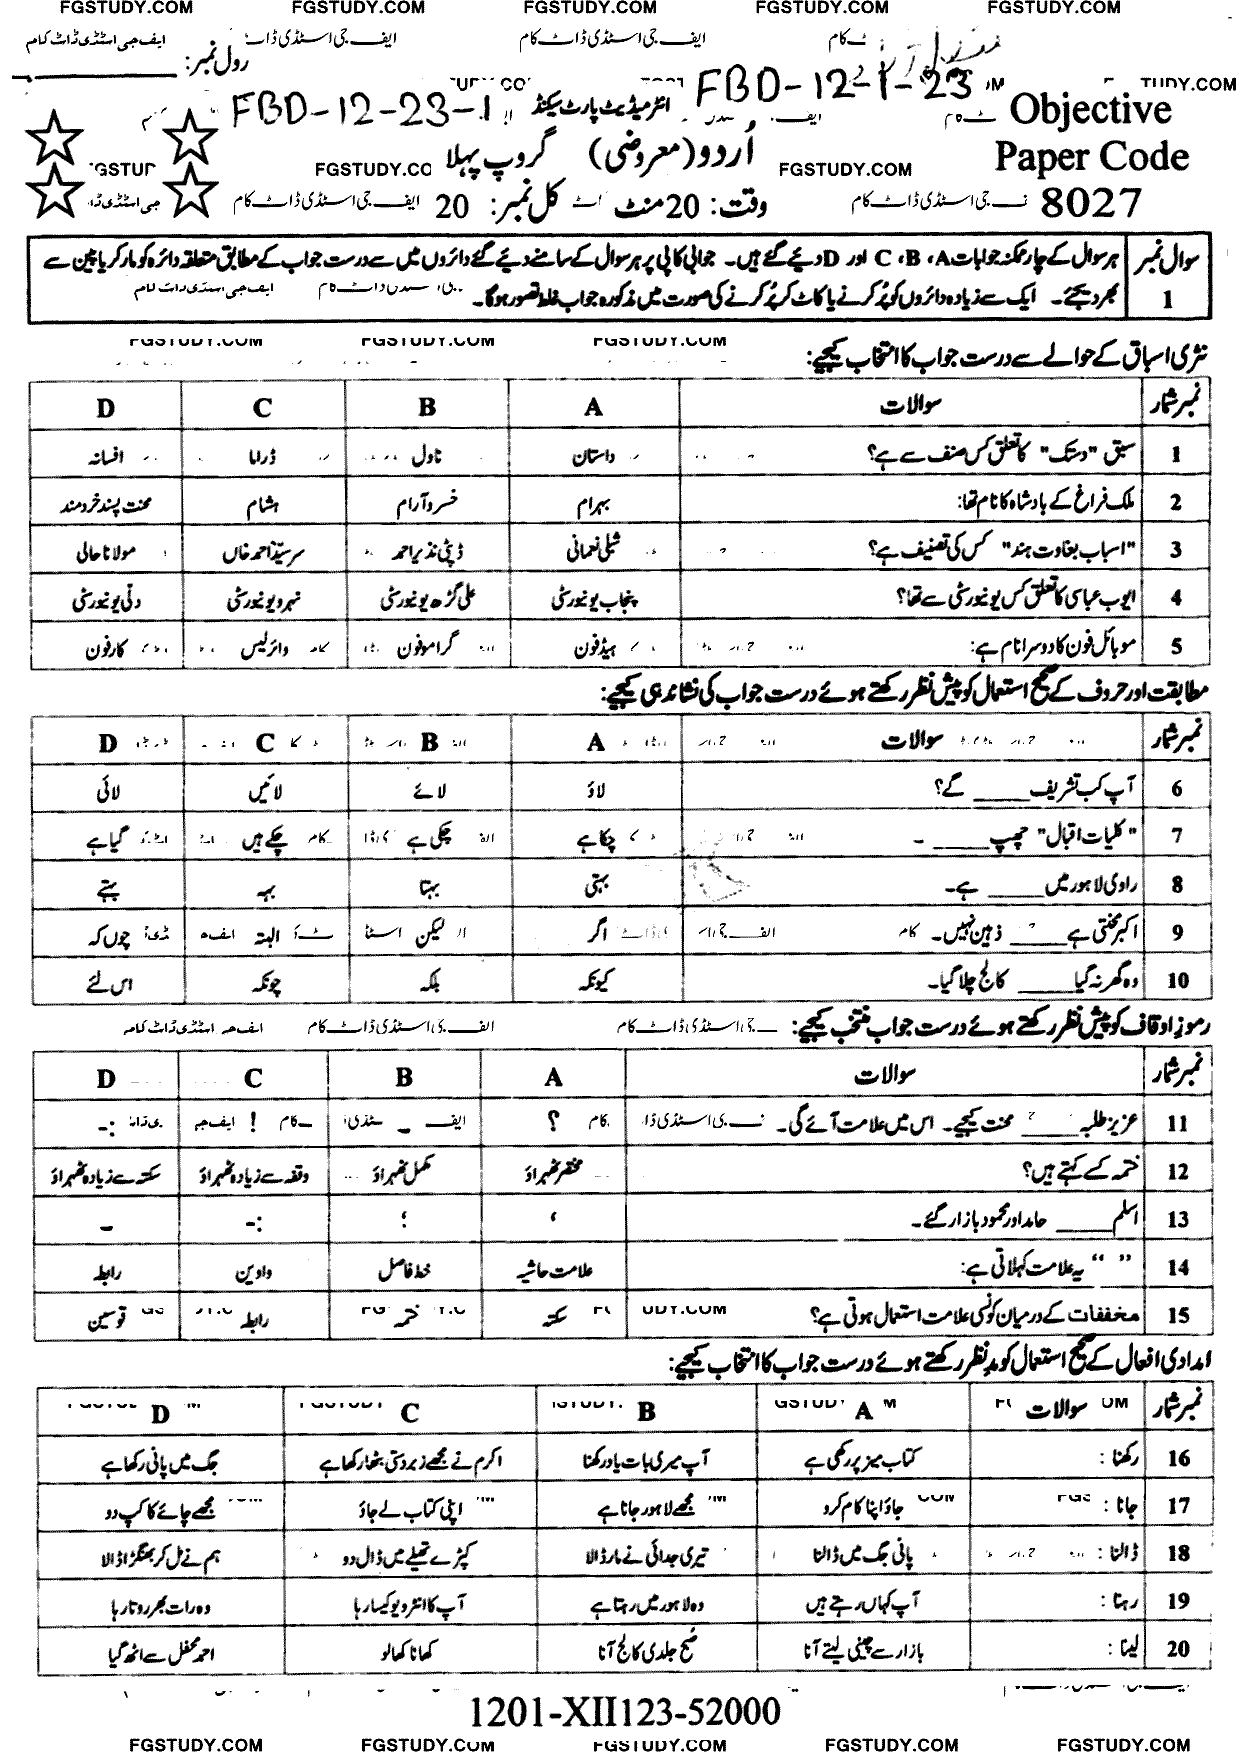 FGSTUDY.COM FGSTUDY.COM FGSTUDY.COM FGSTUDY.COM FGSTUDY.COM
ایف جی اسٹڈی ڈاٹ کام
رول نمبر: ________
FBD-12-23-1 انٹرمیڈیٹ پارٹ سیکنڈ FBD-12-1-23 Objective
اُردو (معروضی) گروپ پہلا Paper Code
وقت: 20 منٹ کل نمبر: 20 8027
سوال نمبر 1 ہر سوال کے چار ممکنہ جوابات A، B، C اور D دیے گئے ہیں۔ جوابی کاپی پر ہر سوال کے سامنے دیے گئے دائروں میں سے درست جواب کے مطابق متعلقہ دائرہ کو مارکر یا پین سے
بھر دیجئے۔ ایک سے زیادہ دائروں کو پُر کرنے یا کاٹ کر پُر کرنے کی صورت میں مذکورہ جواب غلط تصور ہوگا۔
نثری اسباق کے حوالے سے درست جواب کا انتخاب کیجیے:
نمبر شمار سوالات A B C D
1 سبق "دستک" کا تعلق کس صنف سے ہے؟ داستان ناول ڈراما افسانہ
2 ملک فراغ کے بادشاہ کا نام تھا: بہرام خسرو آرام ہشام محنت پسند خردمند
3 "اسباب بغاوت ہند" کس کی تصنیف ہے؟ شبلی نعمانی ڈپٹی نذیر احمد سرسیّد احمد خاں مولانا حالی
4 ایوب عباسی کا تعلق کس یونیورسٹی سے تھا؟ پنجاب یونیورسٹی علی گڑھ یونیورسٹی نہرو یونیورسٹی دلّی یونیورسٹی
5 موبائل فون کا دوسرا نام ہے: ہیڈفون گراموفون وائرلیس کارفون
مطابقت اور حروف کے صحیح استعمال کو پیش نظر رکھتے ہوئے درست جواب کی نشاندہی کیجیے:
نمبر شمار سوالات A B C D
6 آپ کب تشریف ____ گے؟ لاؤ لائے لائیں لائی
7 "کلیات اقبال" چھپ ____ ۔ چکا ہے چکی ہے چکے ہیں گیا ہے
8 راوی لاہور میں ____ ہے۔ بہتی بہتا بہہ بہتے
9 اکبر محنتی ہے ____ ذہین نہیں۔ اگر لیکن البتہ چوں کہ
10 وہ گھر نہ گیا ____ کالج چلا گیا۔ کیونکہ بلکہ چونکہ اس لئے
رموز اوقاف کو پیش نظر رکھتے ہوئے درست جواب منتخب کیجیے:
نمبر شمار سوالات A B C D
11 عزیز طلبہ ____ محنت کیجیے۔ اس میں علامت آئے گی۔ ؟ ۔ ! :-
12 ختمہ کے کہتے ہیں؟ مختصر ٹھہراؤ مکمل ٹھہراؤ وقفہ سے زیادہ ٹھہراؤ سکتہ سے زیادہ ٹھہراؤ
13 اسلم ____ حامد اور محمود بازار گئے۔ ، ؛ :- ۔
14 " " یہ علامت کہلاتی ہے: علامت حاشیہ خط فاصل واوین رابطہ
15 مخففات کے درمیان کونسی علامت استعمال ہوتی ہے؟ سکتہ ختمہ رابطہ قوسین
امدادی افعال کے صحیح استعمال کو مدِنظر رکھتے ہوئے درست جواب کا انتخاب کیجیے:
نمبر شمار سوالات A B C D
16 رکھنا : کتاب میز پر رکھی ہے آپ میری بات یاد رکھنا اکرم نے مجھے زبردستی بٹھا رکھا ہے جگ میں پانی رکھا ہے
17 جانا : جاؤ اپنا کام کرو مجھے لاہور جانا ہے اپنی کتاب لے جاؤ مجھے چائے کا کپ دو
18 ڈالنا : پانی جگ میں ڈالنا تیری جدائی نے مار ڈالا کپڑے تھیلے میں ڈال دو ہم نے مل کر بھنگڑا ڈالا
19 رہنا : آپ کہاں رہتے ہیں وہ لاہور میں رہتا ہے آپ کا انٹرویو کیسا رہا وہ رات بھر روتا رہا
20 لینا : بازار سے چینی لیتے آنا صبح جلدی کالج آنا کھانا کھا لو احمد محفل سے اٹھ گیا
1201-XII123-52000
FGSTUDY.COM FGSTUDY.COM FGSTUDY.COM FGSTUDY.COM FGSTUDY.COM